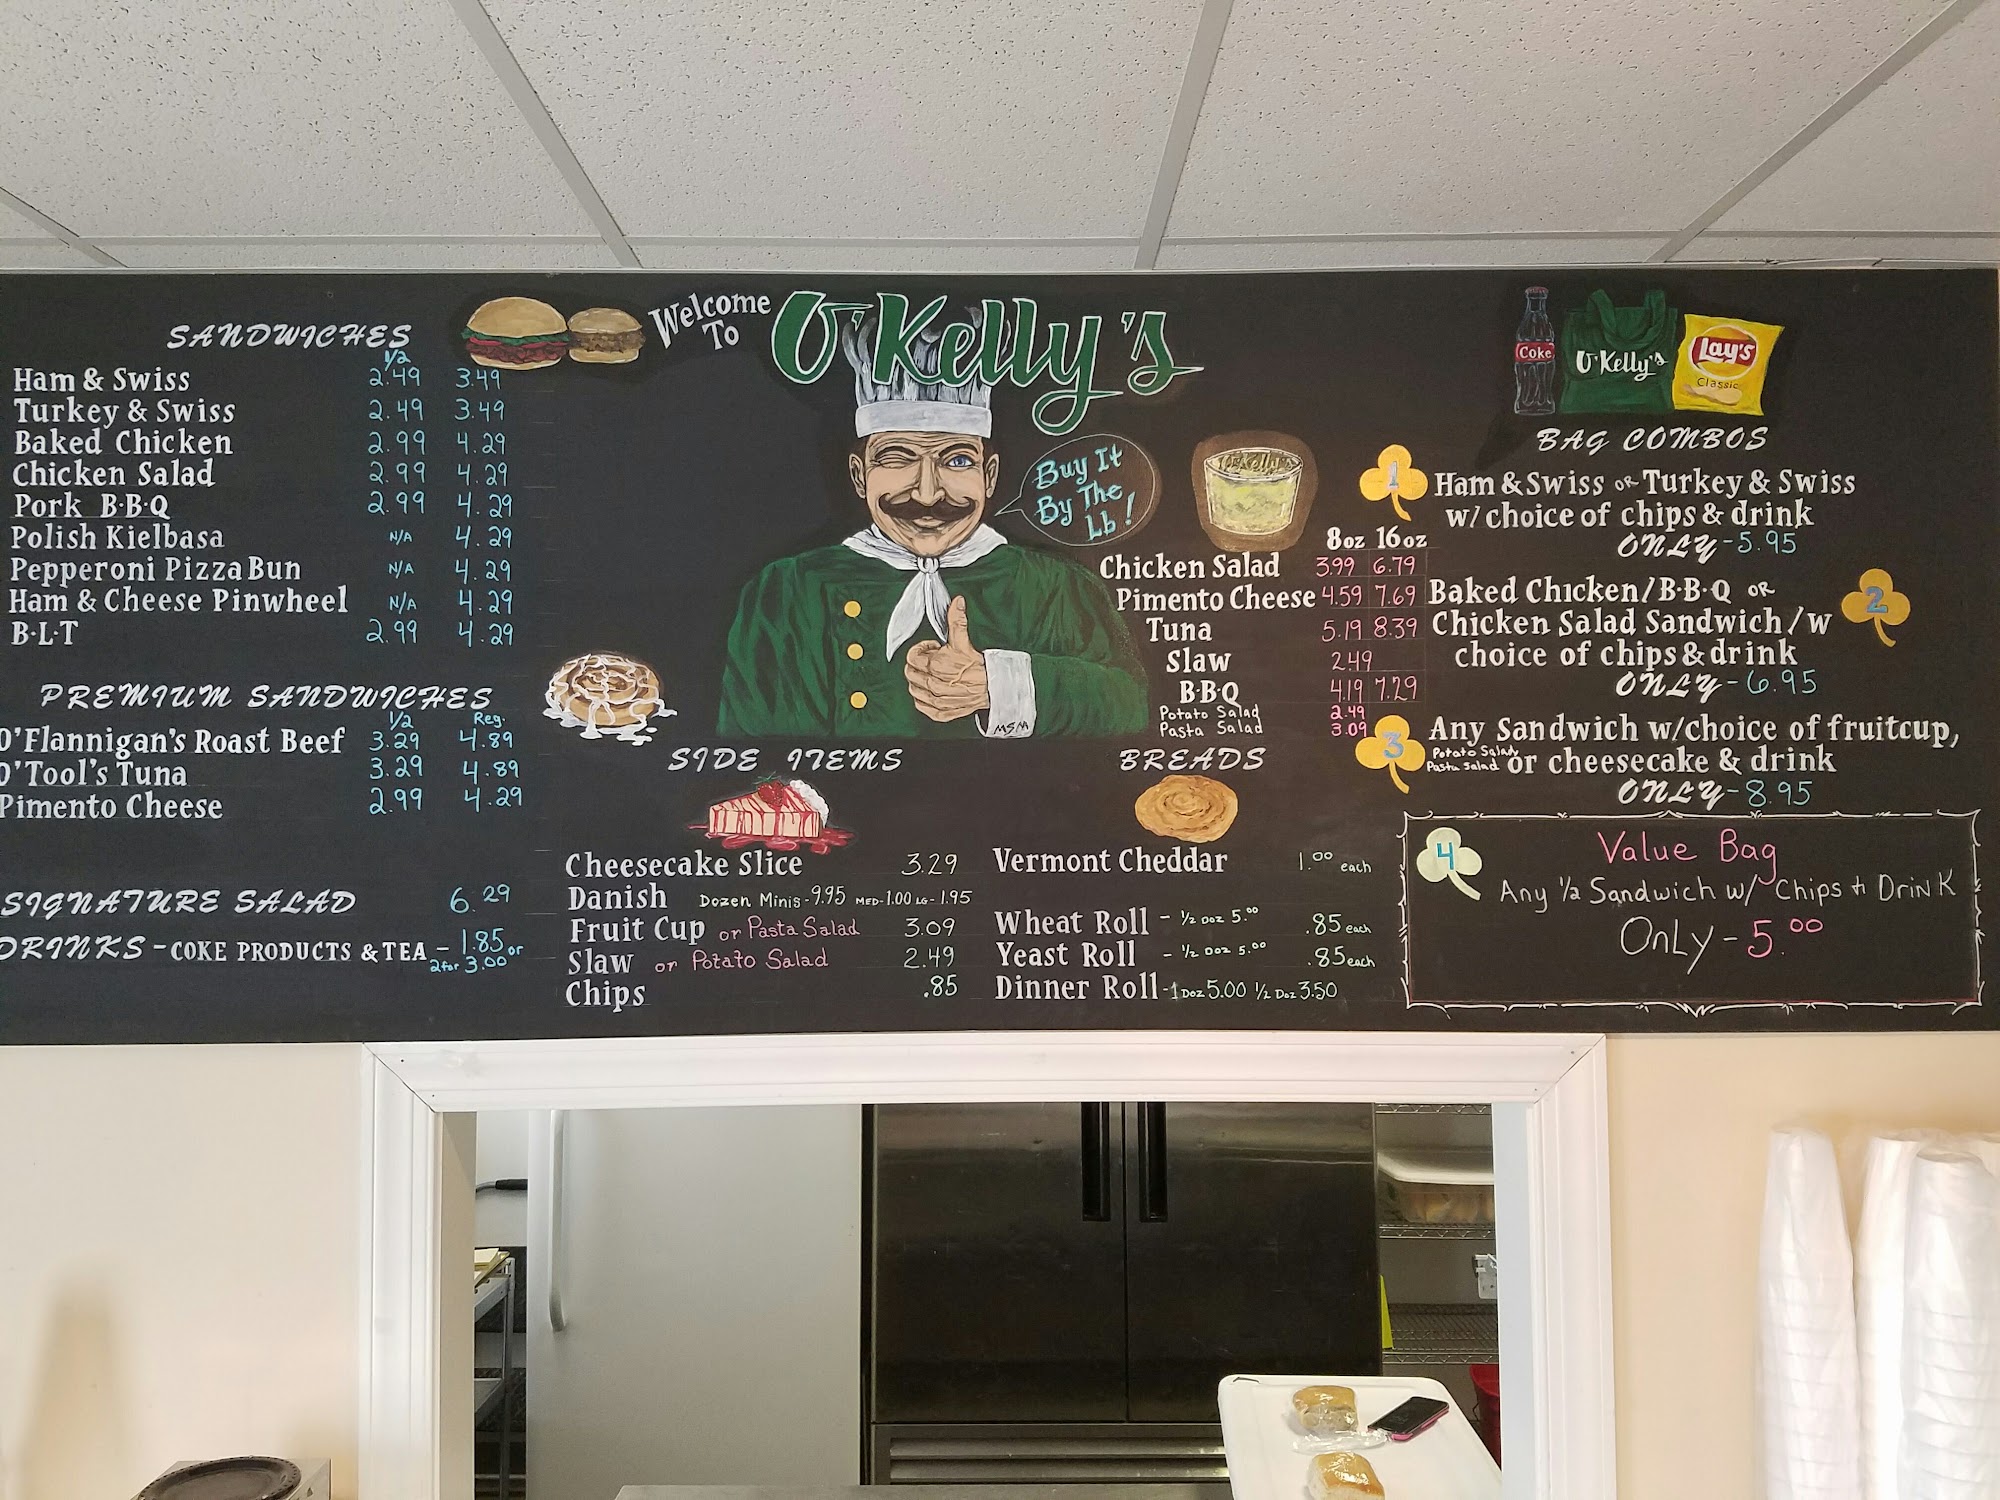 SANDWICHES
1/2
Ham & Swiss 2.49 3.49
Turkey & Swiss 2.49 3.49
Baked Chicken 2.99 4.29
Chicken Salad 2.99 4.29
Pork B·B·Q 2.99 4.29
Polish Kielbasa N/A 4.29
Pepperoni Pizza Bun N/A 4.29
Ham & Cheese Pinwheel N/A 4.29
B·L·T 2.99 4.29
PREMIUM SANDWICHES
1/2 Reg.
O'Flannigan's Roast Beef 3.29 4.89
O'Tool's Tuna 3.29 4.89
Pimento Cheese 2.99 4.29
SIGNATURE SALAD 6.29
DRINKS - COKE PRODUCTS & TEA - 1.85 or
2 for 3.00
Welcome
To
O'Kelly's
Buy It
By The
Lb!
MSM
SIDE ITEMS
Cheesecake Slice 3.29
Danish Dozen Minis - 9.95 MED - 1.00 LG - 1.95
Fruit Cup or Pasta Salad 3.09
Slaw or Potato Salad 2.49
Chips .85
8oz 16oz
Chicken Salad 3.99 6.79
Pimento Cheese 4.59 7.69
Tuna 5.19 8.39
Slaw 2.49
B·B·Q 4.19 7.29
Potato Salad 2.49
Pasta Salad 3.09
BREADS
Vermont Cheddar 1.00 each
Wheat Roll - 1/2 Doz 5.00 .85 each
Yeast Roll - 1/2 Doz 5.00 .85 each
Dinner Roll - 1 Doz 5.00 1/2 Doz 3.50
Coke
O'Kelly's
Lay's
Classic
BAG COMBOS
1
Ham & Swiss OR Turkey & Swiss
w/ choice of chips & drink
ONLY - 5.95
2
Baked Chicken/B·B·Q OR
Chicken Salad Sandwich/w
choice of chips & drink
ONLY - 6.95
3
Any Sandwich w/choice of fruitcup,
Potato Salad
Pasta Salad or cheesecake & drink
ONLY - 8.95
4
Value Bag
Any 1/2 Sandwich w/ Chips + Drink
Only - 5.00